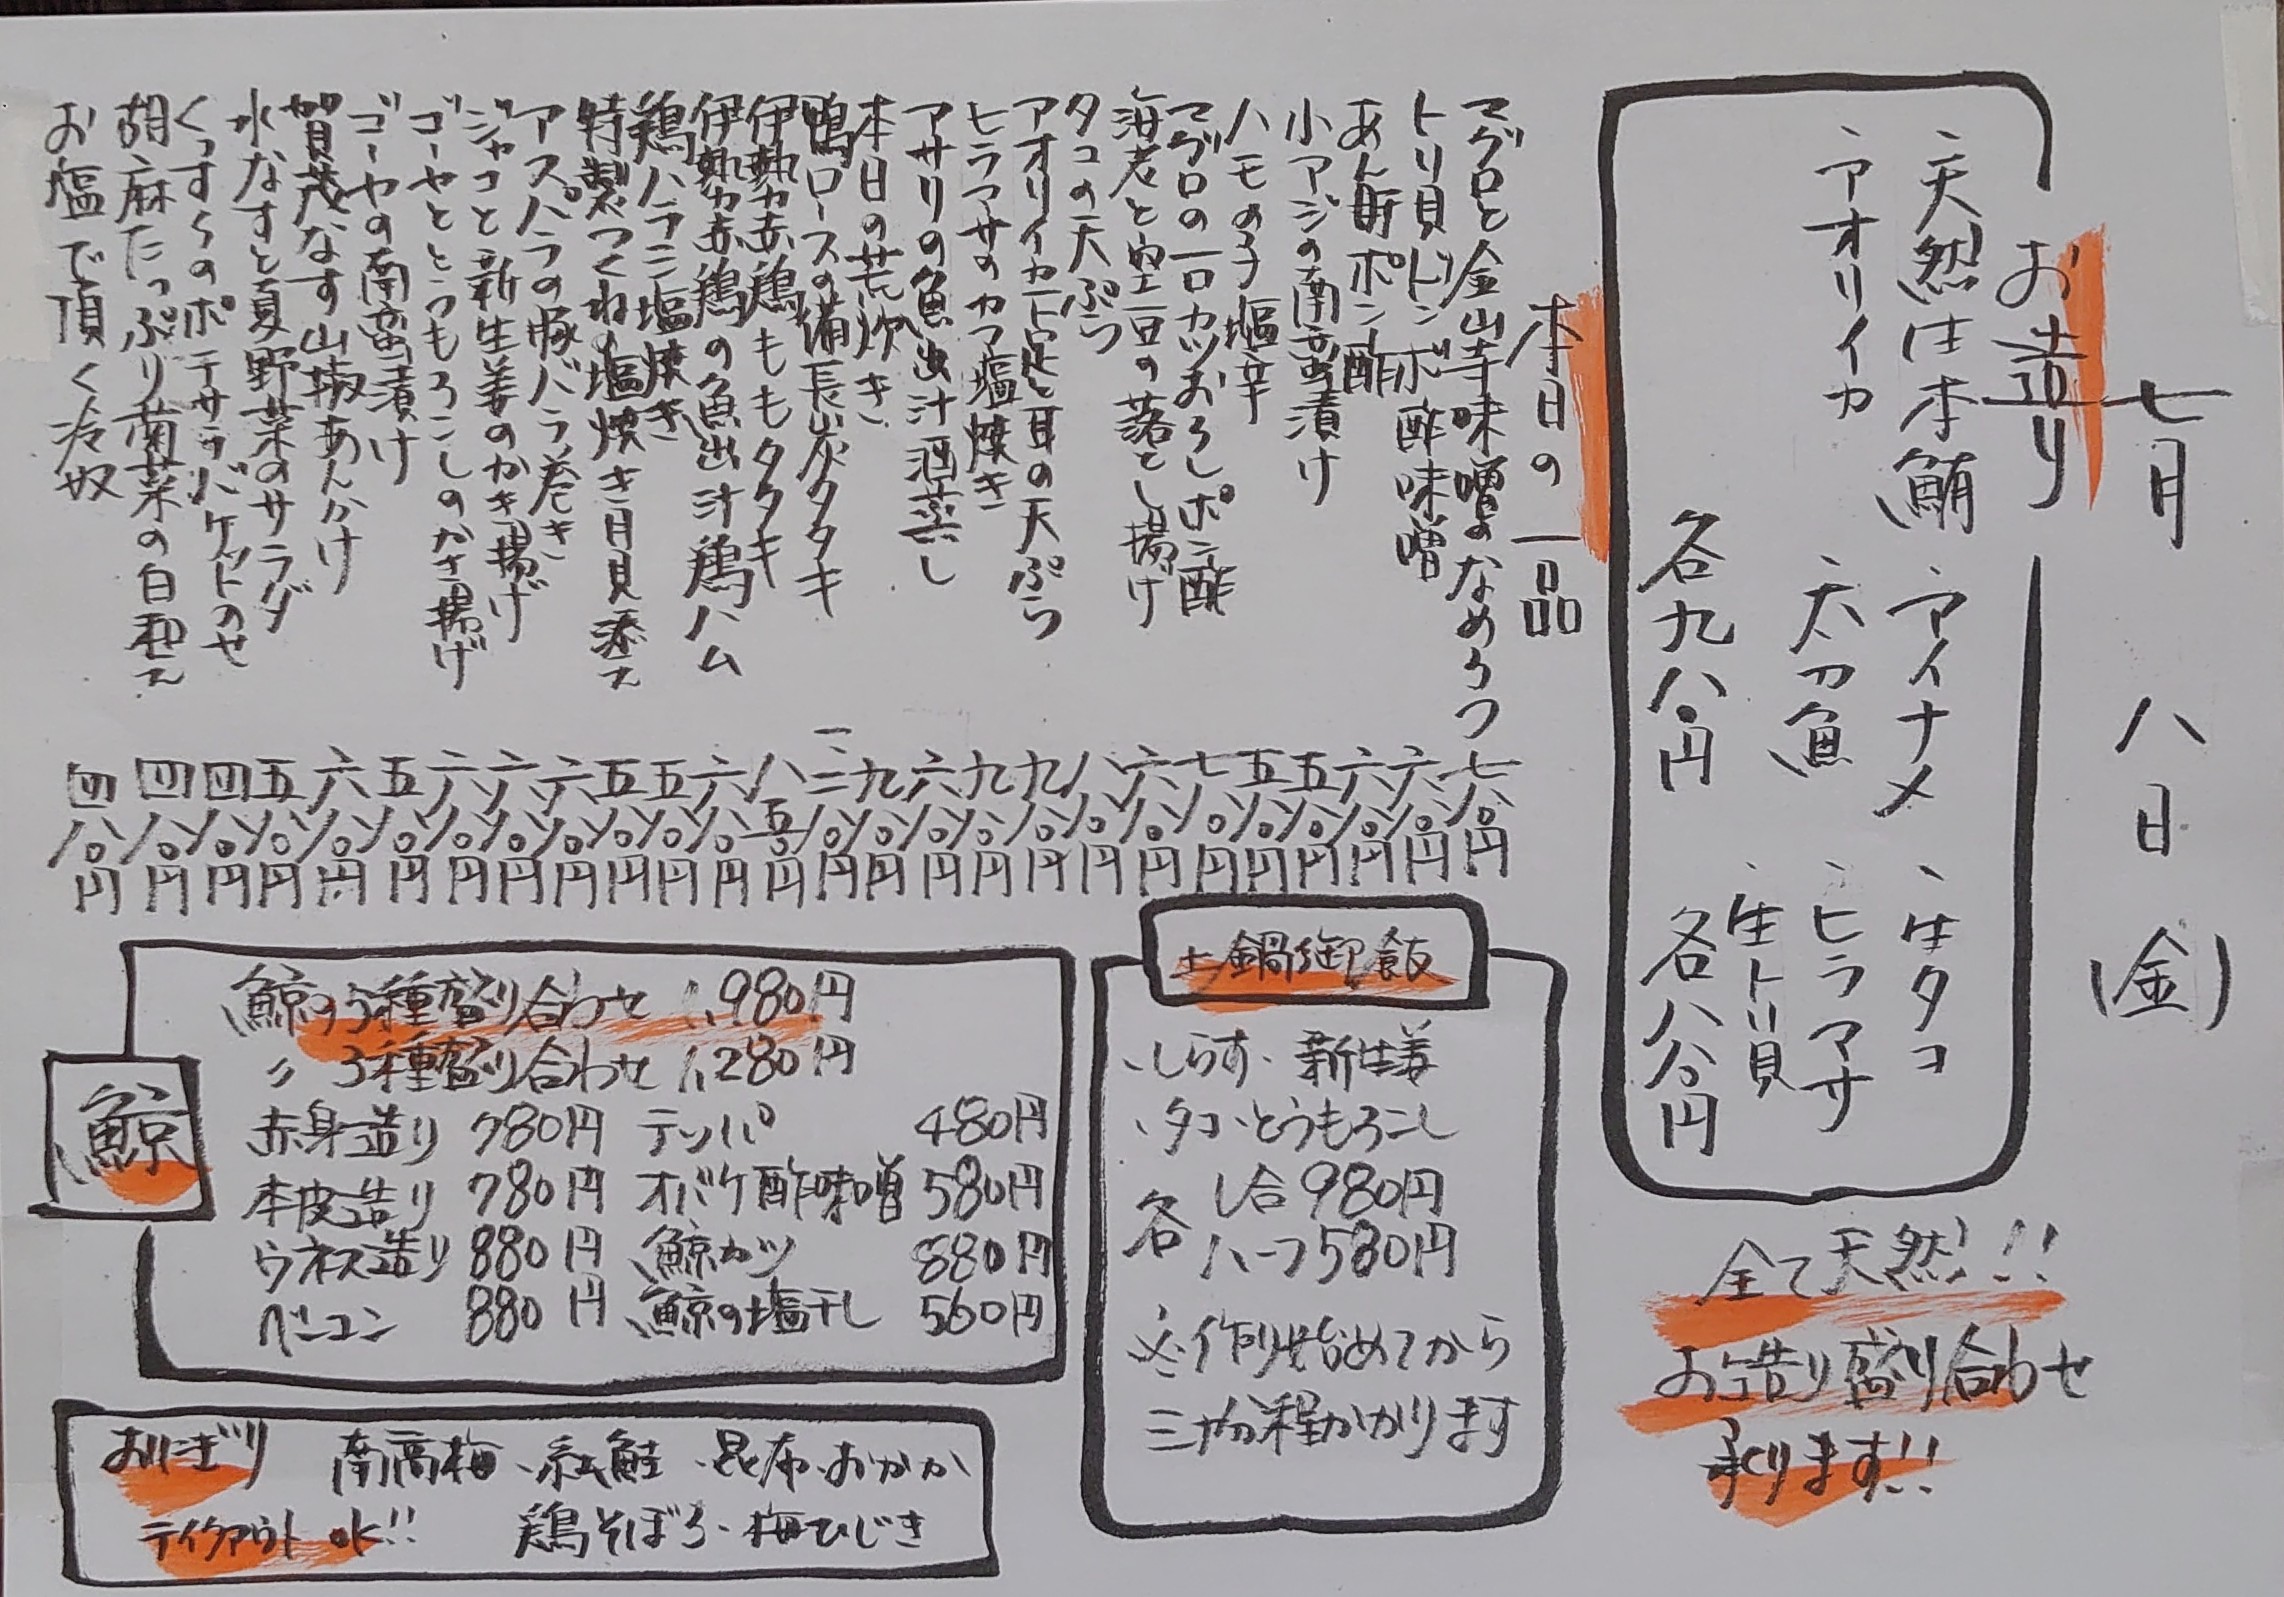 七月 八日 (金)
お造り
、天然生本鮪 、アイナメ 、生タコ
、アオリイカ 、太刀魚 、ヒラマサ
、生トリ貝
各九八〇円 各八八〇円
全て天然!!
お造り盛り合わせ
承ります!!
本日の一品
マグロと金山寺味噌のなめろう 七八〇円
トリ貝ドンボ酢味噌 六八〇円
あん肝ポン酢 六八〇円
小アジの南蛮漬け 五八〇円
ハモの子塩辛 五八〇円
マグロの一口カツおろしポン酢 七八〇円
海老と空豆の落とし揚げ 六八〇円
タコの天ぷら 八八〇円
アオリイカ下足と耳の天ぷら 九八〇円
ヒラマサのカマ塩焼き 九八〇円
アサリの魚出汁酒蒸し 六八〇円
本日の荒炊き 九八〇円
鴨ロースの備長炭タタキ 一、二八〇円
伊勢赤鶏ももタタキ 八五〇円
伊勢赤鶏の魚出汁鶏ハム 六八〇円
鶏ハラミ塩焼き 五八〇円
特製つくね塩焼き月見添え 五八〇円
アスパラの豚バラ巻き 六八〇円
ジャコと新生姜のかき揚げ 六八〇円
ゴーヤととうもろこしのかき揚げ 六八〇円
ゴーヤの南蛮漬け 五八〇円
賀茂なす山椒あんかけ 六八〇円
水なすと夏野菜のサラダ 五八〇円
くっすくのポテサラバケットのせ 四八〇円
胡麻たっぷり菊菜の白和え 四八〇円
お塩で頂く冷奴 四八〇円
土鍋御飯
、しらす、新生姜
、タコ、とうもろこし
各 一合 980円
ハーフ 580円
※作り始めてから
三十分程かかります
鯨
鯨の5種盛り合わせ 1,980円
〃 3種盛り合わせ 1,280円
赤身造り 780円 テッパ 480円
本皮造り 780円 オバケ酢味噌 580円
ウネス造り 880円 鯨カツ 880円
ベーコン 880円 鯨の塩干し 560円
おにぎり 南高梅、紅鮭、昆布、おかか
テイクアウトOK!! 鶏そぼろ、梅ひじき